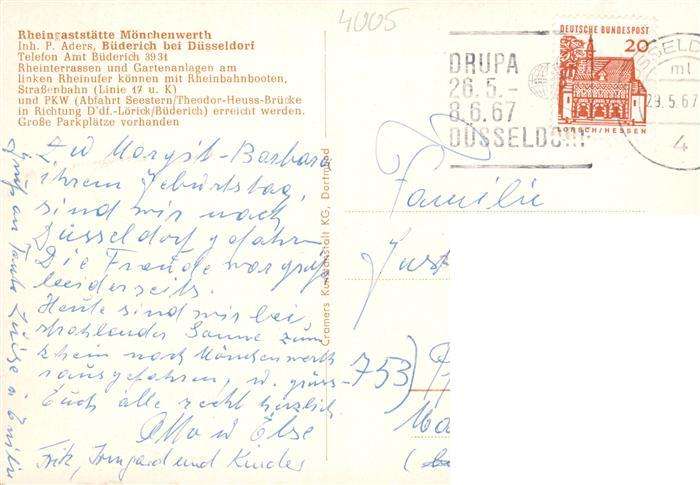 4005
Rheingaststätte Mönchenwerth
Inh. P. Aders, Büderich bei Düsseldorf
Telefon Amt Büderich 8931
Rheinterrassen und Gartenanlagen am
linken Rheinufer können mit Rheinbahnbooten,
Straßenbahn (Linie 17 u. K)
und PKW (Abfahrt Seestern/Theodor-Heuss-Brücke
in Richtung D'df.-Lörick/Büderich) erreicht werden.
Große Parkplätze vorhanden
Zu Margit-Barbara
ihrem Geburtstag,
sind wir nach
Düsseldorf gefahren
Die Freude war groß
beiderseits.
Heute sind wir bei
strahlender Sonne zum
Rhein nach Mönchenwerth
rausgefahren, u. grüss-
Euch alle recht herzlich
Otto u Else
Fritz, Irmgard und Kinder
Gruß an Tante Luise u Emilie
Cramers Kunstanstalt KG, Dortmund
DRUPA
26.5.-
8.6.67
DÜSSELDORF
DEUTSCHE BUNDESPOST
20
LORSCH/HESSEN
SSELD
ml
29.5.67
4
Familie
753)